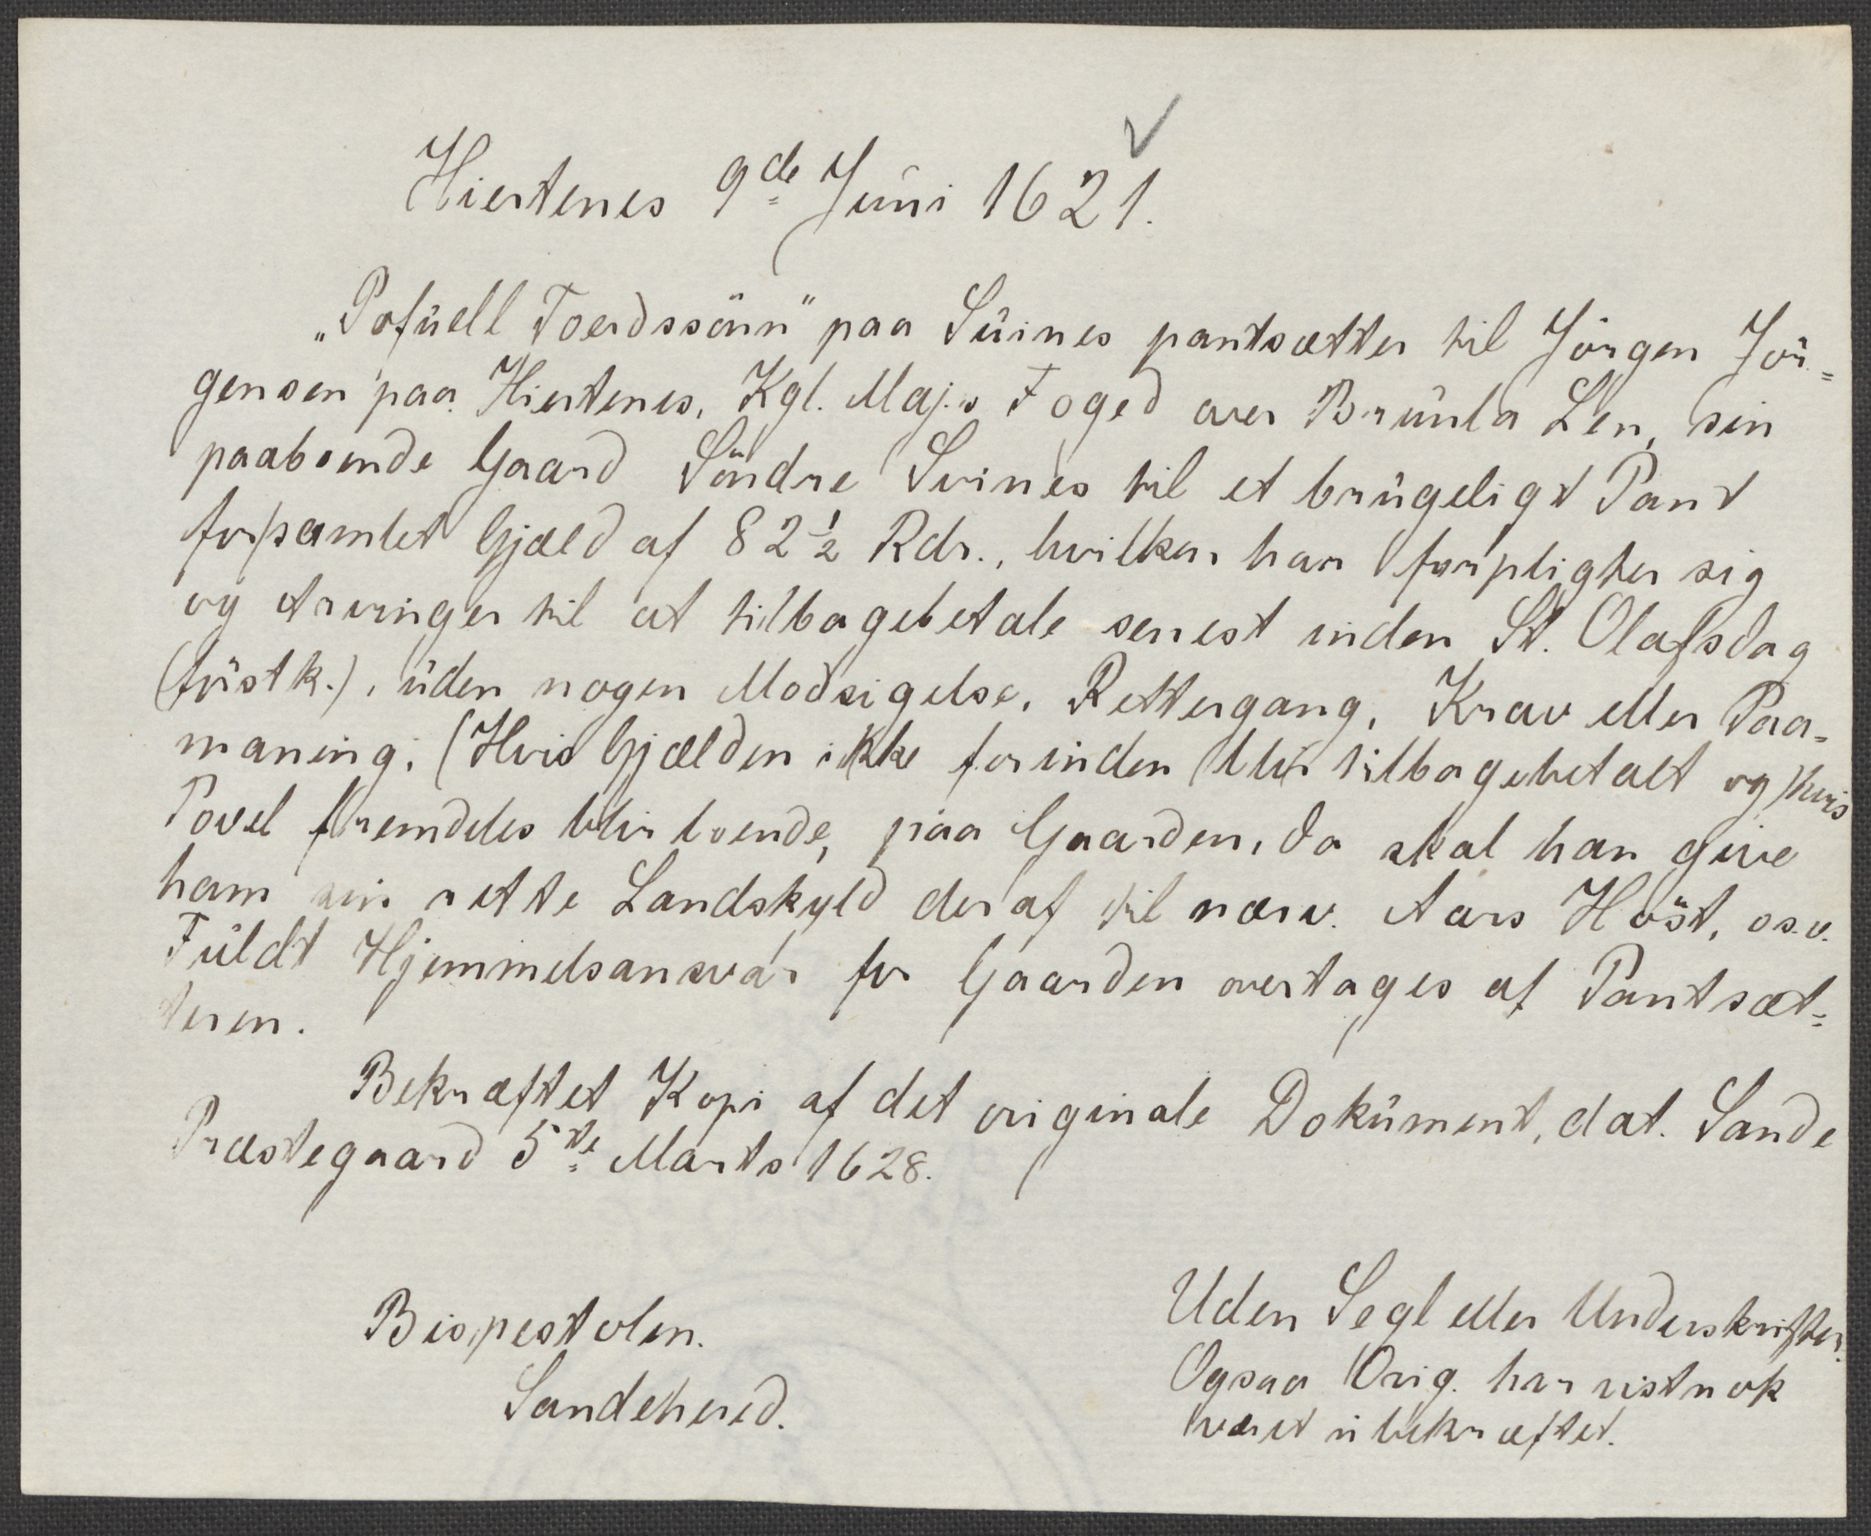 Hiertenes 9de Juni 1621.
„Pofuell Toerdssönn" paa Süines pantsætter til Jörgen Jör=
gensen paa Hiertenes, Kgl. Maj.s Foged over Brunla Len, sin
paaboende Gaard Söndre Svines til et brugeligt Pant
for samlet Gjæld af 82½ Rdr., hvilken han forpligter sig
og Arvinger til at tilbagebetale senest inden St. Olafsdag
(förstk.), uden nogen Modsigelse, Rettergang, Krav eller Paa=
maning. (Hvis Gjælden ikke forinden blir tilbagebetalt og) hvis
Povel fremdeles blir boende, paa Gaarden, da skal han give
ham sin rette Landskyld deraf til nærv. Aars Höst, o.s.v.
Fuldt Hjemmelsansvar for Gaarden overtages af Pantsæt=
teren.
Bekræftet Kopi af det originale Dokument, dat. Sande
Præstegaard 5te Marts 1628.
Bispestolen.
Sandeherred.
Uden Segl eller Underskrifter.
Ogsaa Orig. har vistnok
været ubekræftet.